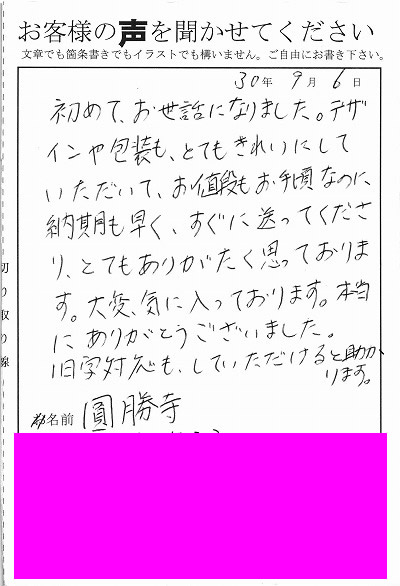 お客様の声を聞かせてください
文章でも箇条書きでもイラストでも構いません。ご自由にお書き下さい。
30年 9月 6日
初めて、お世話になりました。デザ
インや包装も、とてもきれいにして
いただいて、お値段もお手頃なのに、
納期も早く、すぐに送ってくださ
り、とてもありがたく思っておりま
す。大変、気に入っております。本当
にありがとうございました。
旧字対応も、していただけると助か
ります。
お名前 圓勝寺
切り取り線